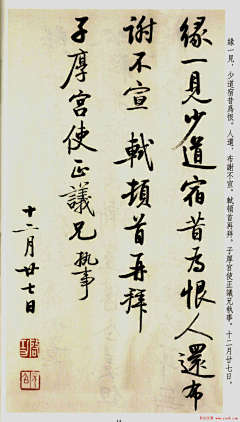 緣一見少道宿昔爲恨人還布
謝不宣 軾頓首再拜
子厚宮使正議兄執事
十二月廿七日
緣一見，少道宿昔爲恨。人還，布謝不宣。軾頓首再拜。子厚宮使正議兄執事。十二月廿七日。